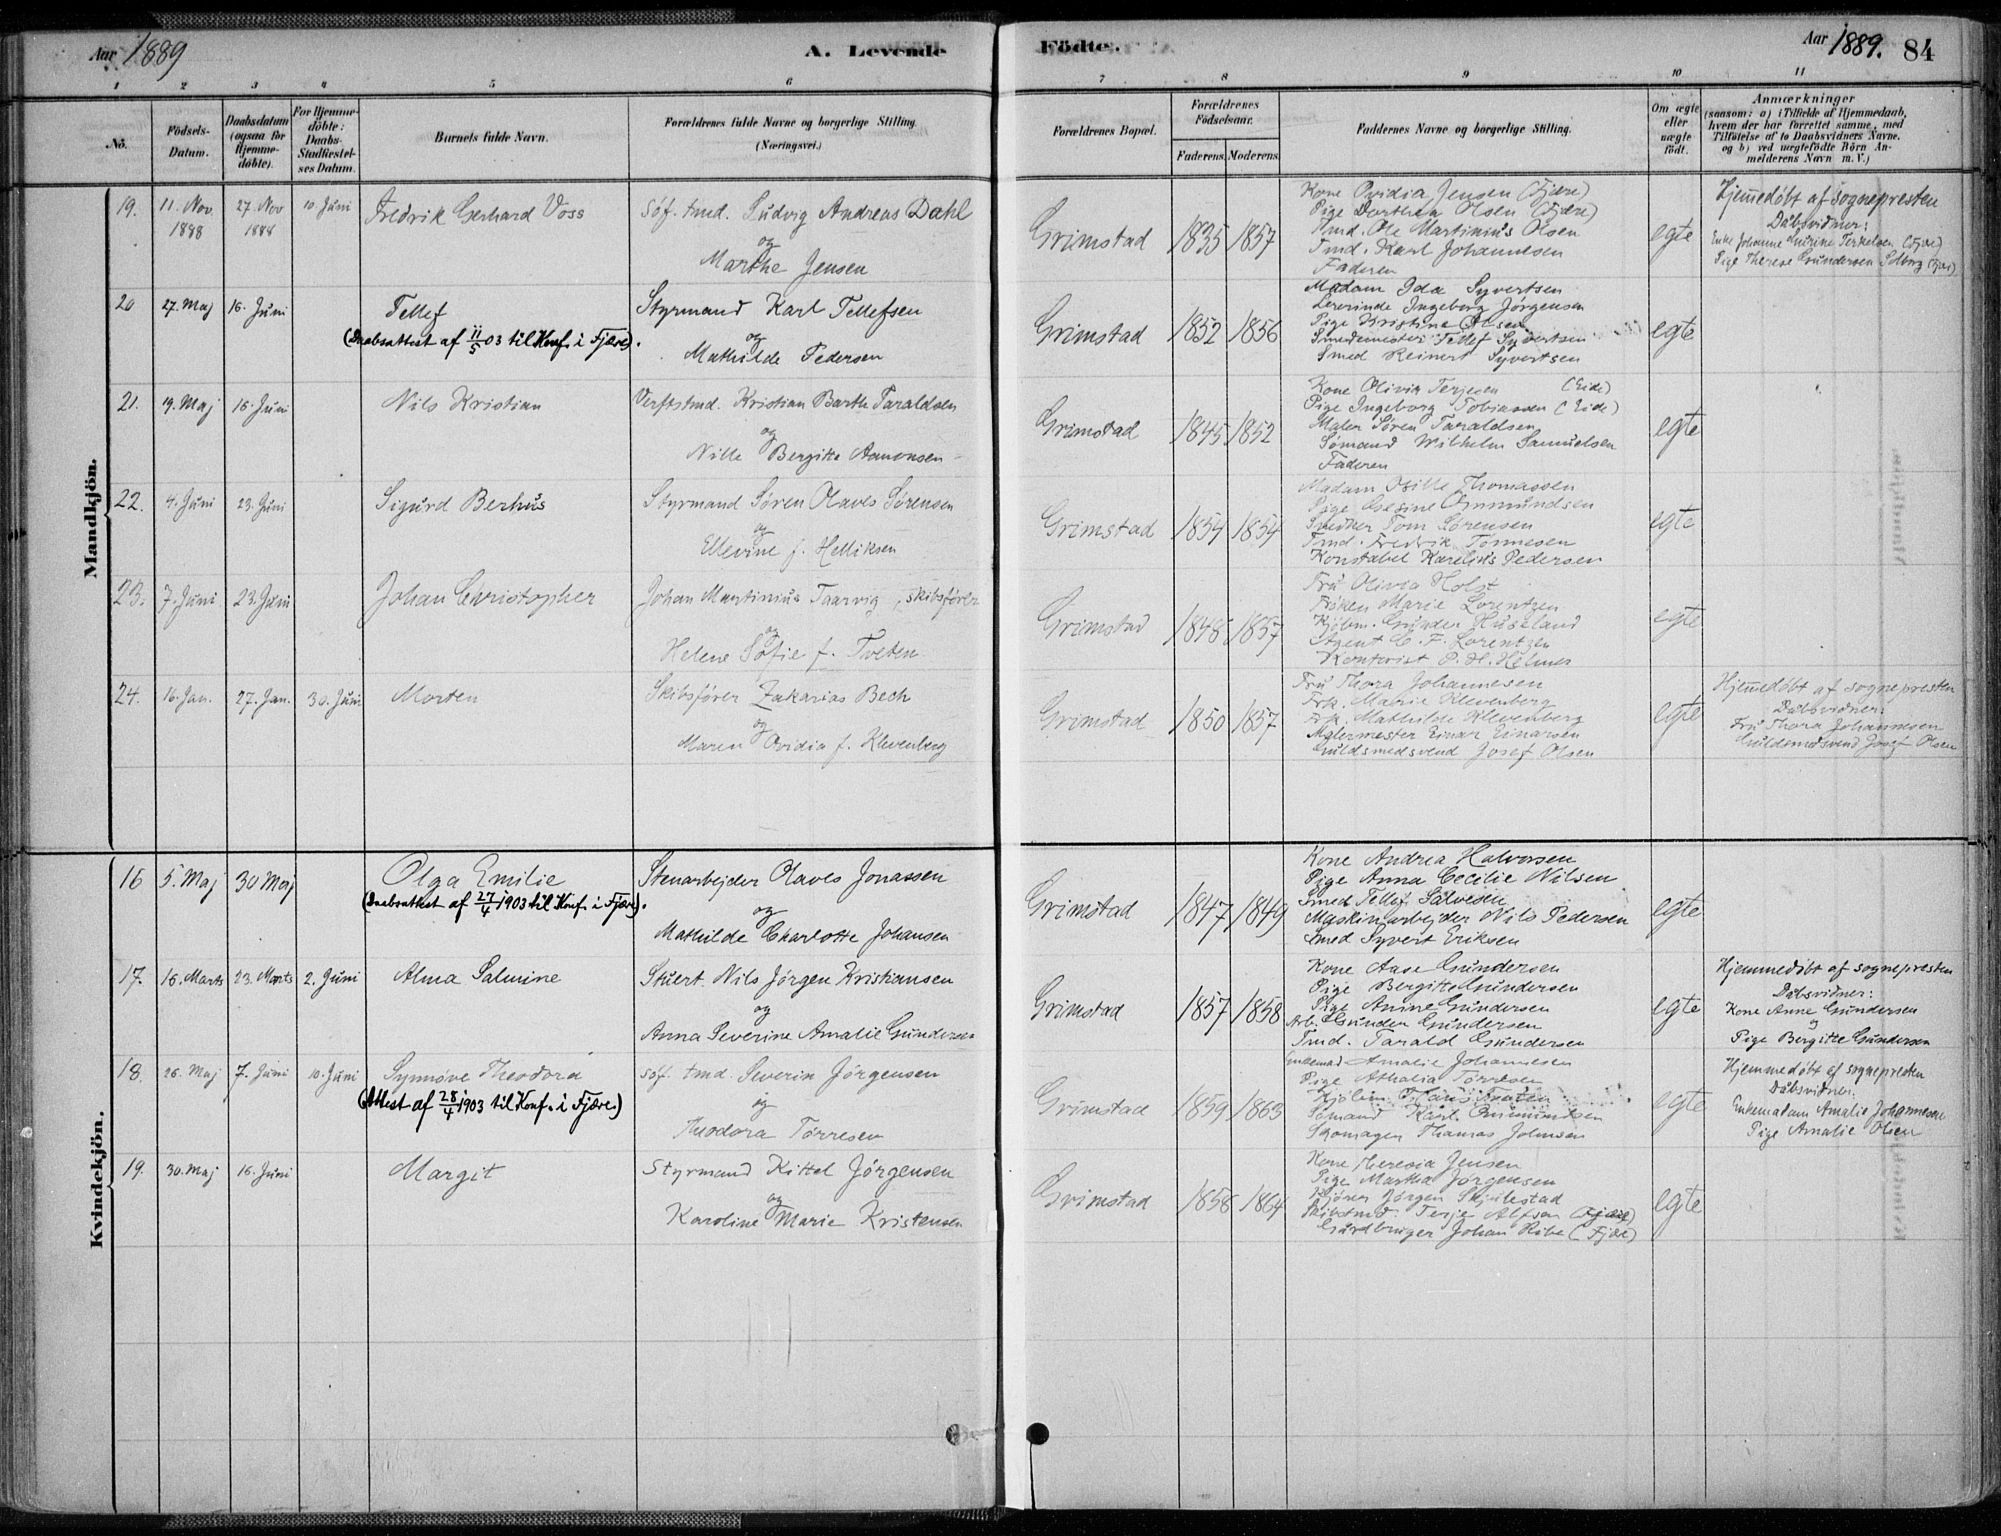 Aar 1889
A. Levende
Födte.
Aar 1889. 84
1 2 3 4 5 6 7 8 9 10 11
No.
Födsels-Datum.
Daabsdatum (ogsaa for Hjemme-döbte).
For Hjemme-döbte: Daabs-Stadfæstel-ses Datum.
Barnets fulde Navn.
Forældrenes fulde Navne og borgerlige Stilling. (Næringsvei.)
Forældrenes Bopæl.
Forældrenes Födselsaar.
Faderens. Moderens.
Faddernes Navne og borgerlige Stilling.
Om ægte eller uægte födt.
Anmærkninger
(saasom: a) i Tilfælde af Hjemmedaab, hvem der har forrettet samme, med Tilföielse af to Daabsvidners Navne. og b) ved uægtefödte Börn An-melderens Navn m. V.)
Mandkjön.
19. 11. Nov 1888 27. Nov 1888 10. Juni Fredrik Gerhard Voss
Söf. tmd. Ludvig Andreas Dahl
og
Marthe Jensen
Grimstad 1835 1857
Kone Ovidia Jensen (Fjære)
Pige Dorthea Olsen (Fjære)
Tmd. Ole Martinius Olsen
Tmd. Karl Johannesen
Faderen
egte
Hjemmedøbt af sognepresten
Dåbsvidner:
Enke Johanne Terkelsen (Fjære)
Pige Therese Gundersen Solborg (Fjære)
20 27. Maj 16. Juni Tellef
(Daabsattest af 11/5 03 til Konf. i Fjære).
Styrmand Karl Tellefsen
og
Mathilde Pedersen
Grimstad 1852 1856
Madam Ida Syvertsen
Lererinde Ingeborg Jørgensen
Pige Kristine Olsen
Smedemester Tellef Syvertsen
Smed Reinert Syvertsen
egte
21. 19. Maj 16. Juni Nils Kristian
Verftstmd. Kristian Barth Taraldsen
og
Nille Bergitte Aanonsen
Grimstad 1845 1852
Kone Olivia Terjesen (Eide)
Pige Ingeborg Tobiassen (Eide)
Maler Søren Taraldsen
Sømand Wilhelm Samuelsen
Faderen
egte
22. 4. Juni 23. Juni Sigurd Berhus
Styrmand Søren Olaves Sørensen
og
Ellevine f. Helliksen
Grimstad 1854 1854
Madam Thomassen
Pige Gesine Gunmundsen
Snedker Tom Sørensen
Tmd. Fredrik Tønnesen
Konstabel Karelius Pedersen
egte
23. 7. Juni 23. Juni Johan Christopher
Johan Martinius Taarvig, skibsfører
og
Helene Sofie f. Tveten
Grimstad 1848 1857
Fru Olivia Holst
Frøken Marie Lorentzen
Kjøbm. Gunder Huseland
Agent C. F. Lorentzen
Kontorist P. H. Holmer
egte
24. 16. Jan. 27. Jan. 30. Juni Morten
Skibsfører Zakarias Bech
og
Maren Ovidia f. Klevenberg
Grimstad 1850 1857
Fru Thora Johannesen
Frk. Marie Klevenberg
Frk. Mathilde Klevenberg
Malermester Einar Einarsen
Guldsmedsvend Josef Olsen
egte
Hjemmedøbt af sognepresten
Dåbsvidner:
Fru Thora Johannesen
Guldsmedsvend Josef Olsen
Kvindekjön.
16 5. Maj 30 Maj Olga Emilie
(Daabsattest af 27/4 1903 til Konf. i Fjære).
Stenarbejder Olaves Jonassen
og
Mathilde Charlotte Johansen
Grimstad 1847 1849
Kone Andrea Halvorsen
Pige Anna Cecilie Nilsen
Smed Tellef Salvesen
Maskinarbejder Nils Pedersen
Smed Syvert Eriksen
egte
17. 16. Marts 23. Marts 2. Juni Alma Salmine
Stuert Nils Jørgen Kristiansen
og
Anna Severine Amalie Gundersen
Grimstad 1857 1858
Kone Aase Gundersen
Pige Bergitte Gundersen
Pige Anine Gundersen
Arb. Gunder Gundersen
Tmd. Tarald Gundersen
egte
Hjemmedøbt af sognepresten
Dåbsvidner:
Kone Anne Gundersen
og
Pige Bergitte Gundersen
18. 26. Maj 7. Juni 10. Juni Synnøve Theodora
(Attest af 28/4 1903 til Konf. i Fjære.)
Söf. tmd. Severin Jørgensen
og
Theodora Tørresen
Grimstad 1859 1863
Enkemad Amalie Johannesen
Pige Athalia Tørresen
Sømand Karl Gunmundsen
Skomager Thomas Johnsen
egte
Hjemmedøbt af sognepresten
Dåbsvidner:
Enkemadam Amalie Johannesen
Pige Amalie Olsen
19. 30. Maj 16. Juni Margit
Styrmand Kittel Jørgensen
og
Karoline Marie Kristensen
Grimstad 1858 1864
Kone Theresia Jensen
Pige Martha Jørgensen
Jørgen Skjulestad
Skibstmd. Terje Alfsen (Fjære)
Gårdbruger Johan Ribe (Fjære)
egte